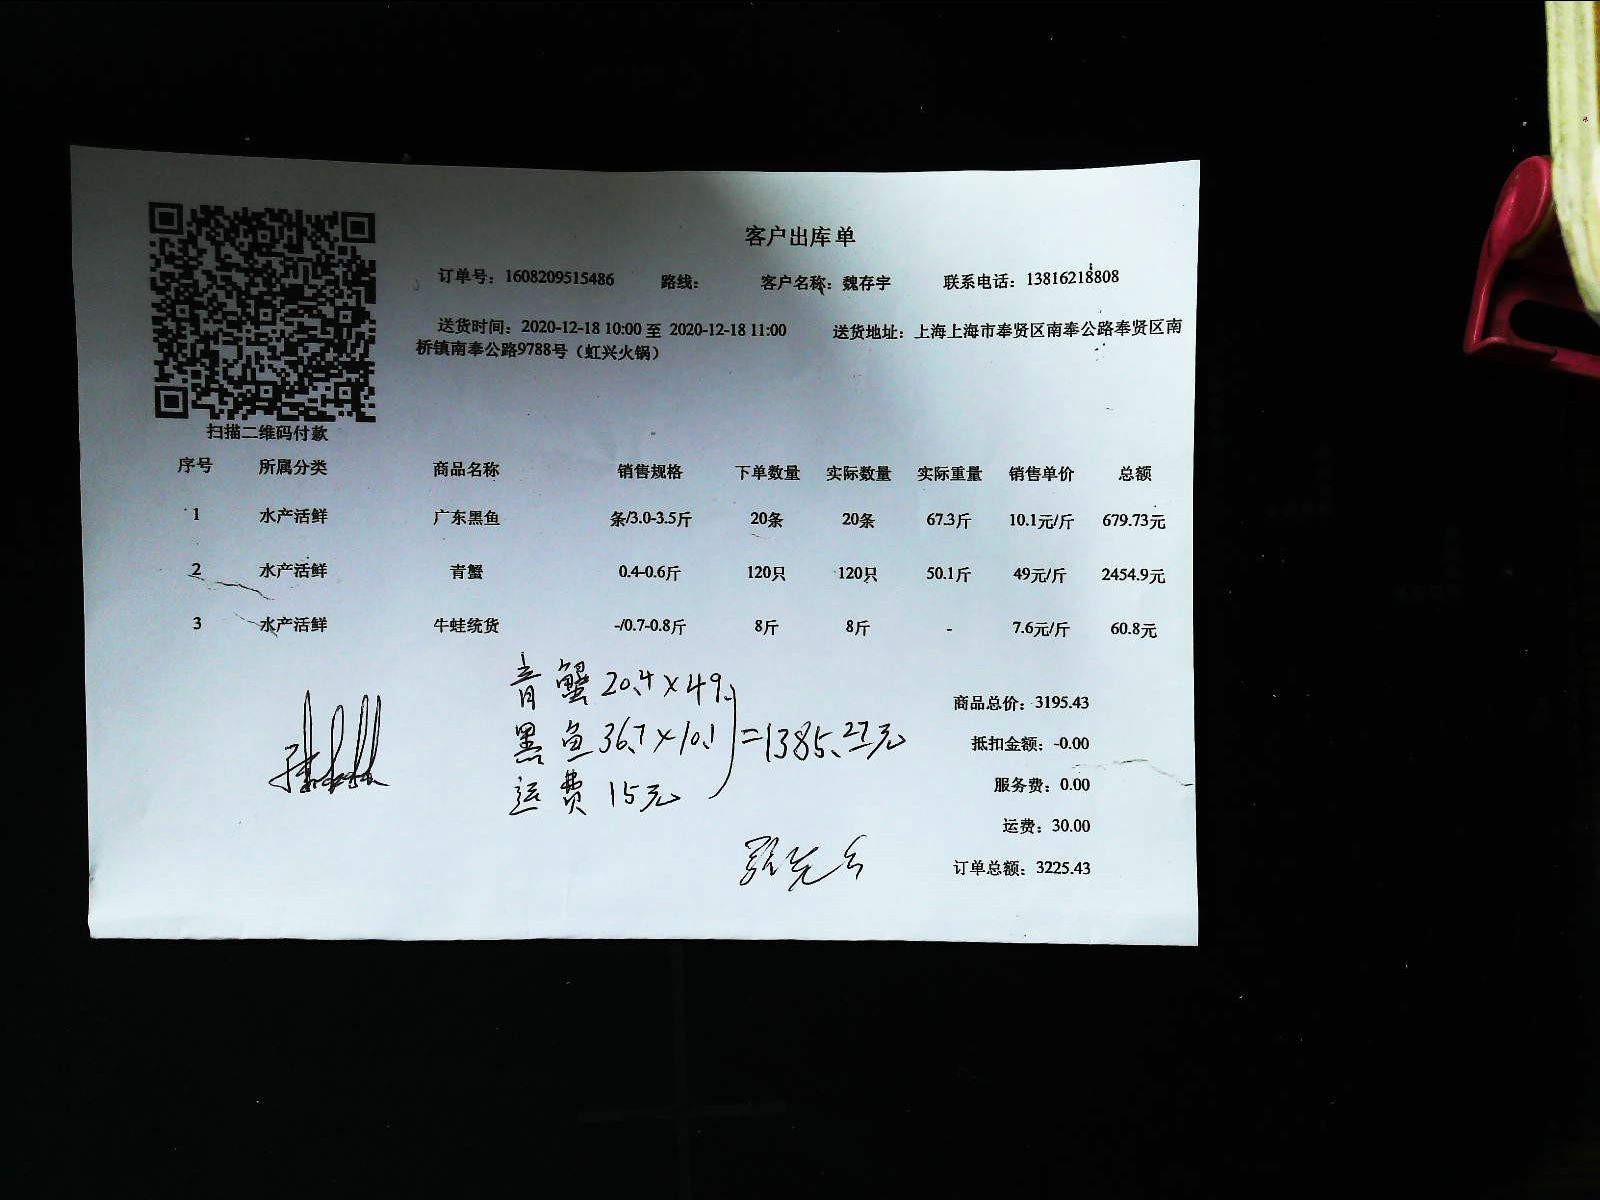 客户出库单
订单号：1608209515486 路线： 客户名称：魏存宇 联系电话：13816218808
送货时间：2020-12-18 10:00 至 2020-12-18 11:00 送货地址：上海上海市奉贤区南奉公路奉贤区南
桥镇南奉公路9788号（虹兴火锅）
扫描二维码付款
序号 所属分类 商品名称 销售规格 下单数量 实际数量 实际重量 销售单价 总额
1 水产活鲜 广东黑鱼 条/3.0-3.5斤 20条 20条 67.3斤 10.1元/斤 679.73元
2 水产活鲜 青蟹 0.4-0.6斤 120只 120只 50.1斤 49元/斤 2454.9元
3 水产活鲜 牛蛙统货 -/0.7-0.8斤 8斤 8斤 - 7.6元/斤 60.8元
青蟹 20.4×49
黑鱼 36.7×10.1 =1385.27元
运费 15元
商品总价：3195.43
抵扣金额：-0.00
服务费：0.00
运费：30.00
订单总额：3225.43